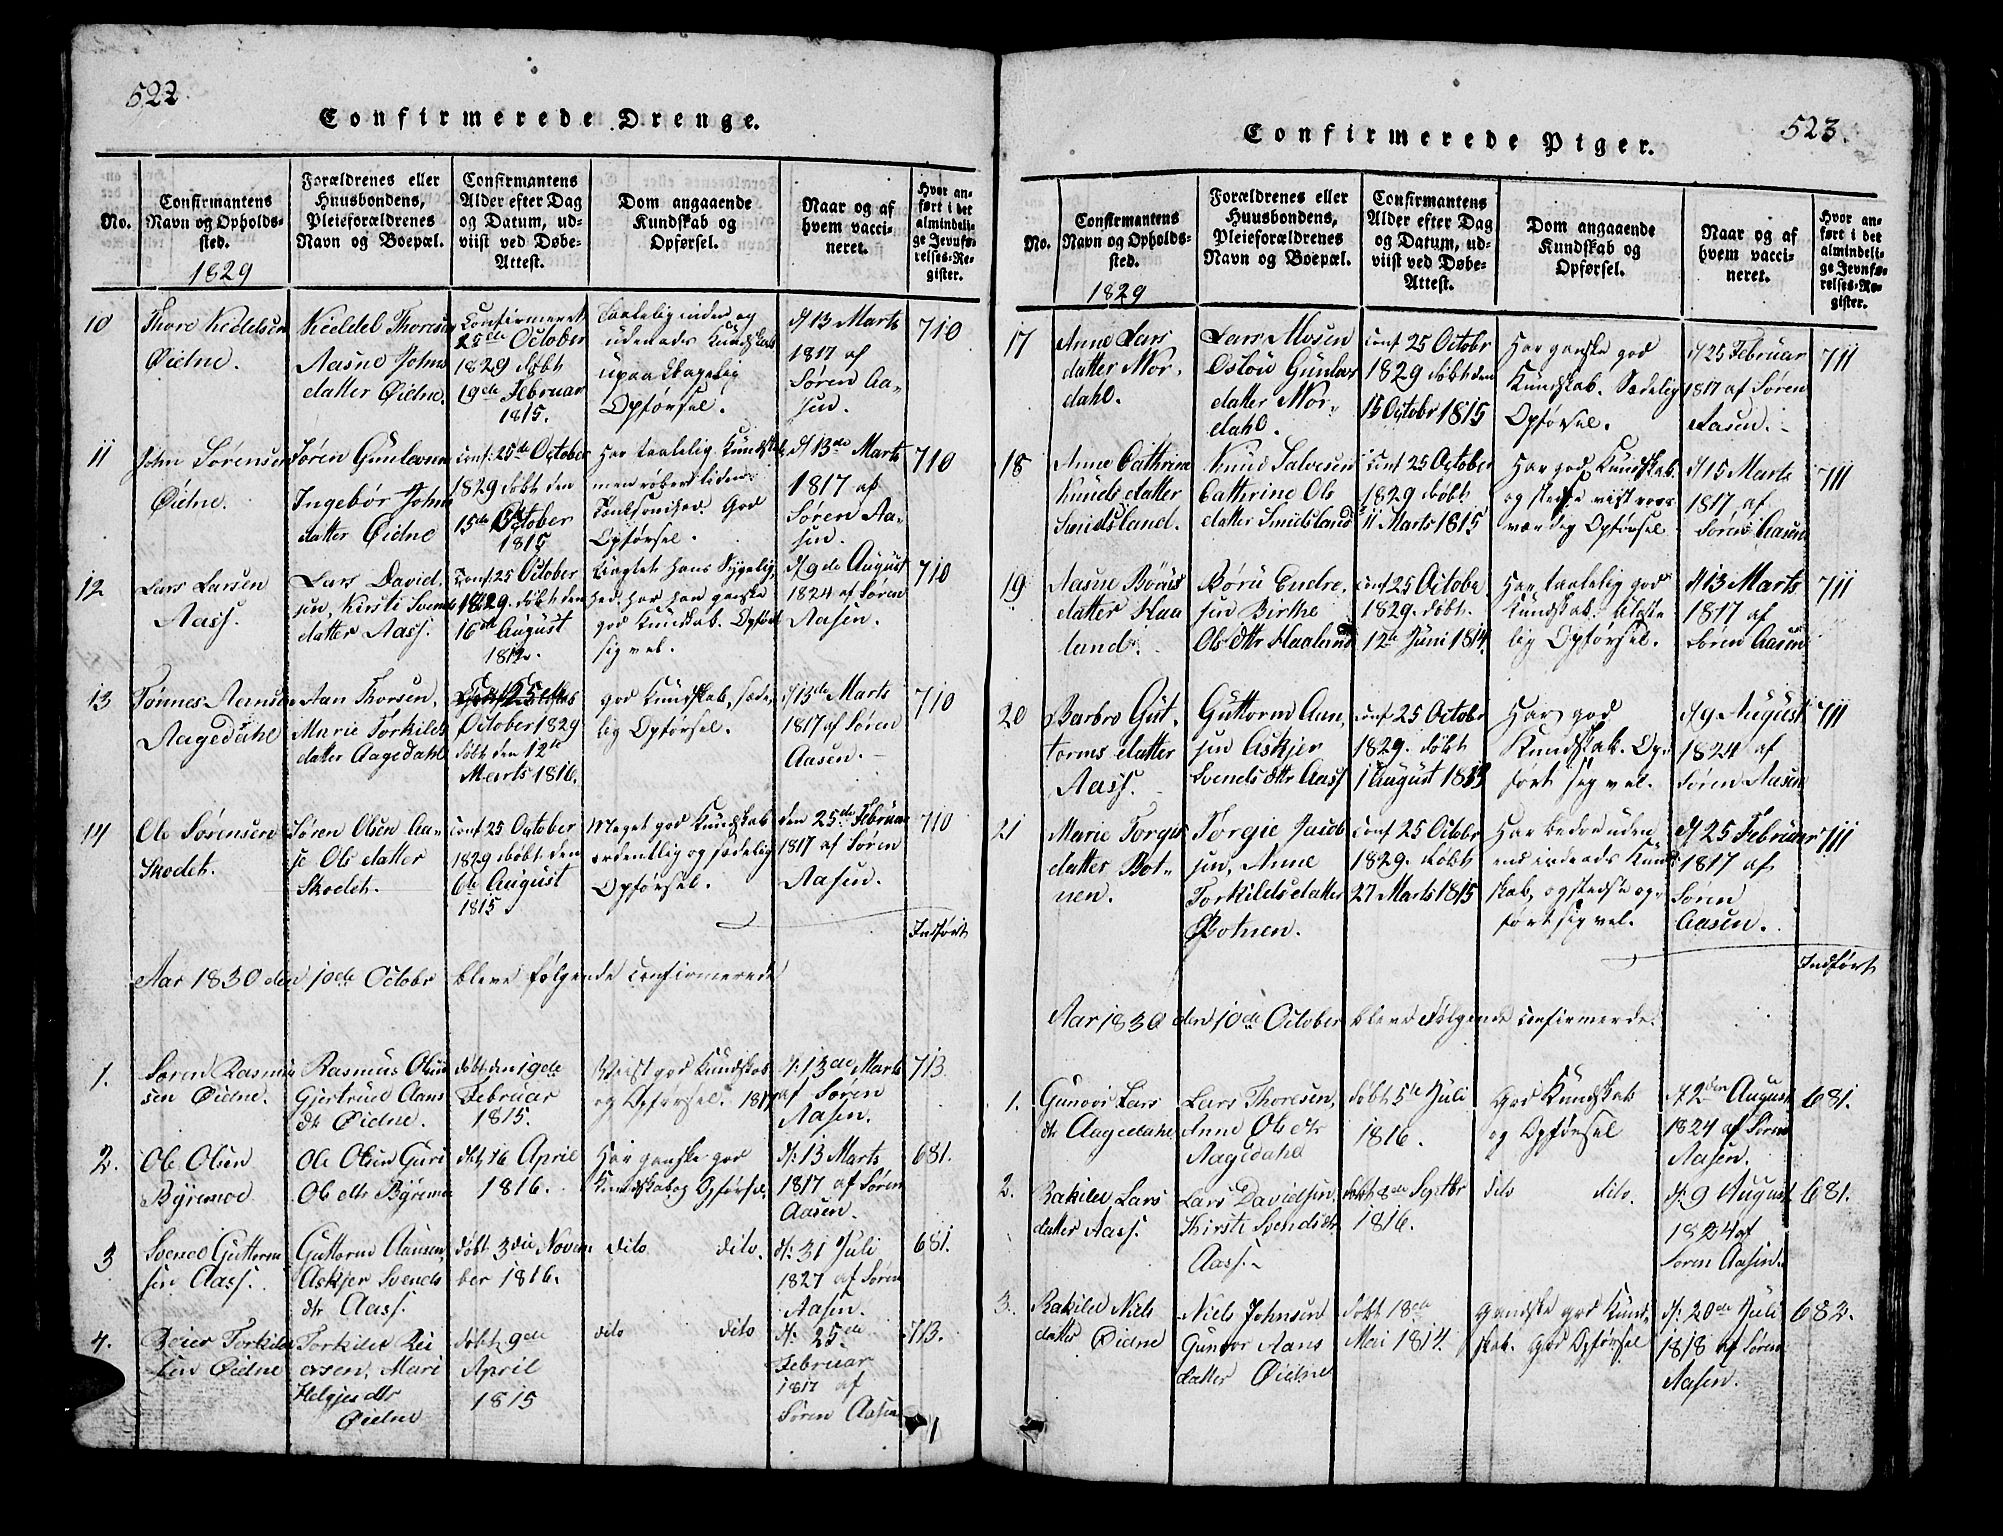 522.
Confirmerede Drenge.
No.
Confirmantens
Navn og Opholds-
sted.
1829
Forældrenes eller
Huusbondens,
Pleieforældrenes
Navn og Boepæl.
Confirmantens
Alder efter Dag
og Datum, ud-
viist ved Døbe-
Attest.
Dom angaaende
Kundskab og
Opførsel.
Naar og af
hvem vacci-
neret.
Hvor an-
ført i det
almindeli-
ge Jevnfø-
relses-Re-
gister.
10
Thore Kieldsen
Øidne.
Kieldel Thores
Aasne Johns
datter Øidne.
Confirmeret
25de October
1829 døbt
19de Februar
1815.
Taalelig inden og
udenads Kundskab
upaaklagelig
Opførsel.
d/13 Marts
1817 af
Søren Aa-
sen.
710
11
John Sørensen
Øidne.
Søren Gunlevsen
Ingebør Johns
datter Øidne
Conf: 25de October
1829 døbt den
15de October
1815
Har taalelig Kundskab
men røber liden
God
Opførsel.
d/13de Marts
1817 af
Søren Aa-
sen.
710
12
Lars Larsen
Aass.
Lars David-
sen, Kirsti Svends
datter Aass.
Conf 25 October
1829. døbt den
16de August
1812.
Uagtet hans Sygelig-
hed, har han ganske
god Kundskab. Opført
sig vel.
d/9de August
1824 af Søren
Aasen.
710
13
Tønnes Aansen
Aagedahl
Aan Thorsen,
Marie Torkilds
datter Aagedahl
Conf 25de
October 1829
døbt den 12te
Marts 1816.
god Kundskab, sæde-
lig Opførsel.
d/13de Marts
1817 af Søren
Aasen.
710
14
Ole Sørensen
Skodet.
Søren Olsen Aa-
se Ols datter
Skodet.
Conf 25 October
1829 døbt den
6te August
1815.
Meget god Kundskab
ordentlig og sædelig
Opførsel.
den 25de Februar
1817 af Søren
Aasen.
710
Indført
Aar 1830 den 10de Octobr bleve følgende confirmerede
1.
Søren Rasmu-
sen Øidne.
Rasmus Olsen
Gjertrud Aans
dtr Øidne.
døbt den 19de
Februar
1815.
Meget god Kundskab
og Opførsel.
d. 13de Marts
1817 af Søren
Aasen.
713.
2.
Ole Olsen
Byremoe.
Ole Olsen Guri
Ols dtr Byremo
døbt 16 April
1816.
Har ganske god
Kundskab og Opførsel.
d: 13 Marts
1817 af Søren
Aasen.
681.
3
Svend Guttorm
sen Aass.
Guttorm Aansen,
Askjer Svends
dtr Aass.
døbt 3die Novem
ber 1816.
dito dito.
d: 31 Juli
1827 af Søren
Aasen.
681.
4.
Reier Torkild
sen Øidne
Torkild Rei
ersen, Mari
Helgjes dtr
Øidne
døbt 9de
April
1815
dito dito
d: 25de
Februar
1817 af
Søren Aasen
713.
523.
Confirmerede Piger.
No.
Confirmantens
Navn og Opholds-
sted.
1829
Forældrenes eller
Huusbondens,
Pleieforældrenes
Navn og Boepæl.
Confirmantens
Alder efter Dag
og Datum, ud-
viist ved Døbe-
Attest.
Dom angaaende
Kundskab og
Opførsel.
Naar og af
hvem vacci-
neret.
Hvor an-
ført i det
almindeli-
ge Jevnfø-
relses-Re-
gister.
17
Anne Lars
datter Mor-
dahl.
Lars Mosen
Oslou Gunlas
datter Mor-
dahl.
Conf 25 Octobr
1829 døbt den
15 Octobr 1815
Har ganske god
Kundskab. Sædelig
Opførsel.
d/25 Februar
1817 af Søren
Aasen.
711
18
Anne Cathrine
Knuds datter
Smidsland.
Knud Salvesen
Cathrine Ols
datter Smidsland
Conf 25 October
1829 døbt
11 Marts 1815
Har god Kundskab
og stedse viist roes-
værdig Opførsel.
d/15 Marts
1817 af
Søren Aasen
711
19
Aasne Børus
datter Haa
land.
Børu Endre-
sen Birthe
Ols dttr Haaland
Conf 25 Octobe
1829. døbt
12te Juni 1814.
Har taalelig god
Kundskab.
lig Opførsel.
d/13 Marts
1817 af
Søren Aasen
711
20
Barbro Gut-
torms datter
Aass.
Guttorm Aan-
sen Askjer
Svends dttr Aass
Conf 25 Octobr
1829. døbt
1 August 1813
Har god
Kundskab. Op-
ført sig vel.
d/9 August
1824 af
Søren Aasen
711
21
Marie Torgus
datter Bot-
nen.
Torgie Jacob
sen, Anne
Torkildsdatter
Botnen.
Conf 25 Octobr
1829. døbt
27 Marts 1815
Har bedre uden
end indenads Kund-
skab, og stedse op-
ført sig vel.
d/25 Februar
1817 af
Søren
Aasen.
711
Indført
Aar 1830 den 10de October bleve Følgende confirmerede.
1.
Gunvor Lars
dtr Aagedahl
Lars Thoresen,
Anne Ols dtr
Aagedahl
døbt 5te Juli
1816.
God Kundskab
og Opførsel
d. 2den August
1824 af Søren
Aasen.
681.
2.
Rakild Lars
datter Aass.
Lars Davidsen,
Kirsti Svendsdtr
Aass.
døbt 8de Septbr
1816.
dito dito.
d: 9 August
1824 af
Søren Aasen.
681.
3.
Rakild Niels
datter Øidne
Niels Johnsen
Gunvor Aans
datter Øidne
døbt 18de
Mai 1814.
Ganske god Kund-
skab. God Opførsel
d: 20de Juli
1818 af Søren
Aasen.
682.